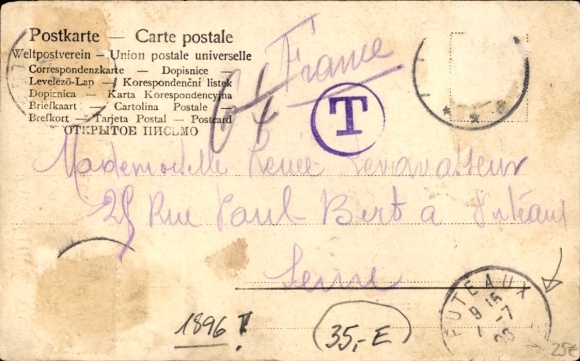 Postkarte — Carte postale
Weltpostverein — Union postale universelle
Correspondenzkarte — Dopisnice
Levelező-Lap — Korespondenční listek
Dopicnica — Karta Korrespondencyjna
Briefkaart — Cartolina Postale —
Brefkort — Tarjeta Postal — Postcard
ОТКРЫТОЕ ПИСЬМО
France
T
Mademoiselle Renée Levavasseur
25 Rue Paul Bert à Putéaux
Seine
PUTEAUX
1896?
35,-E
25€